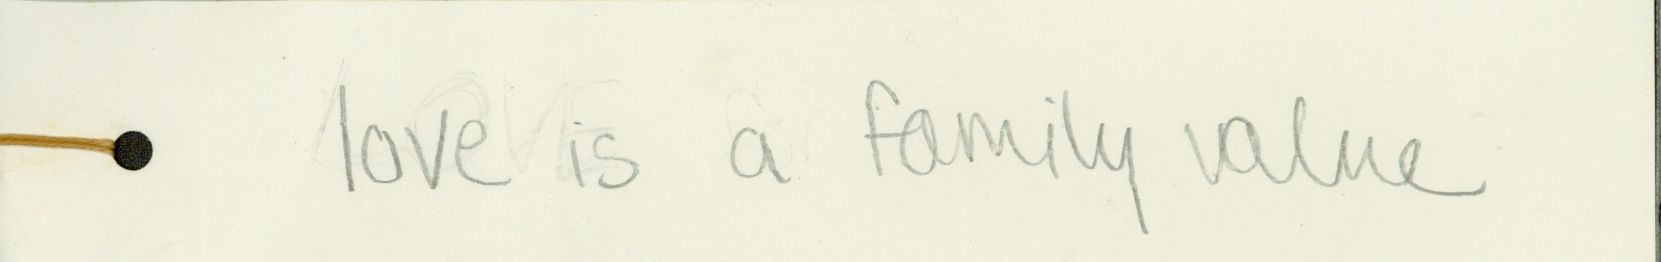 love is a family value